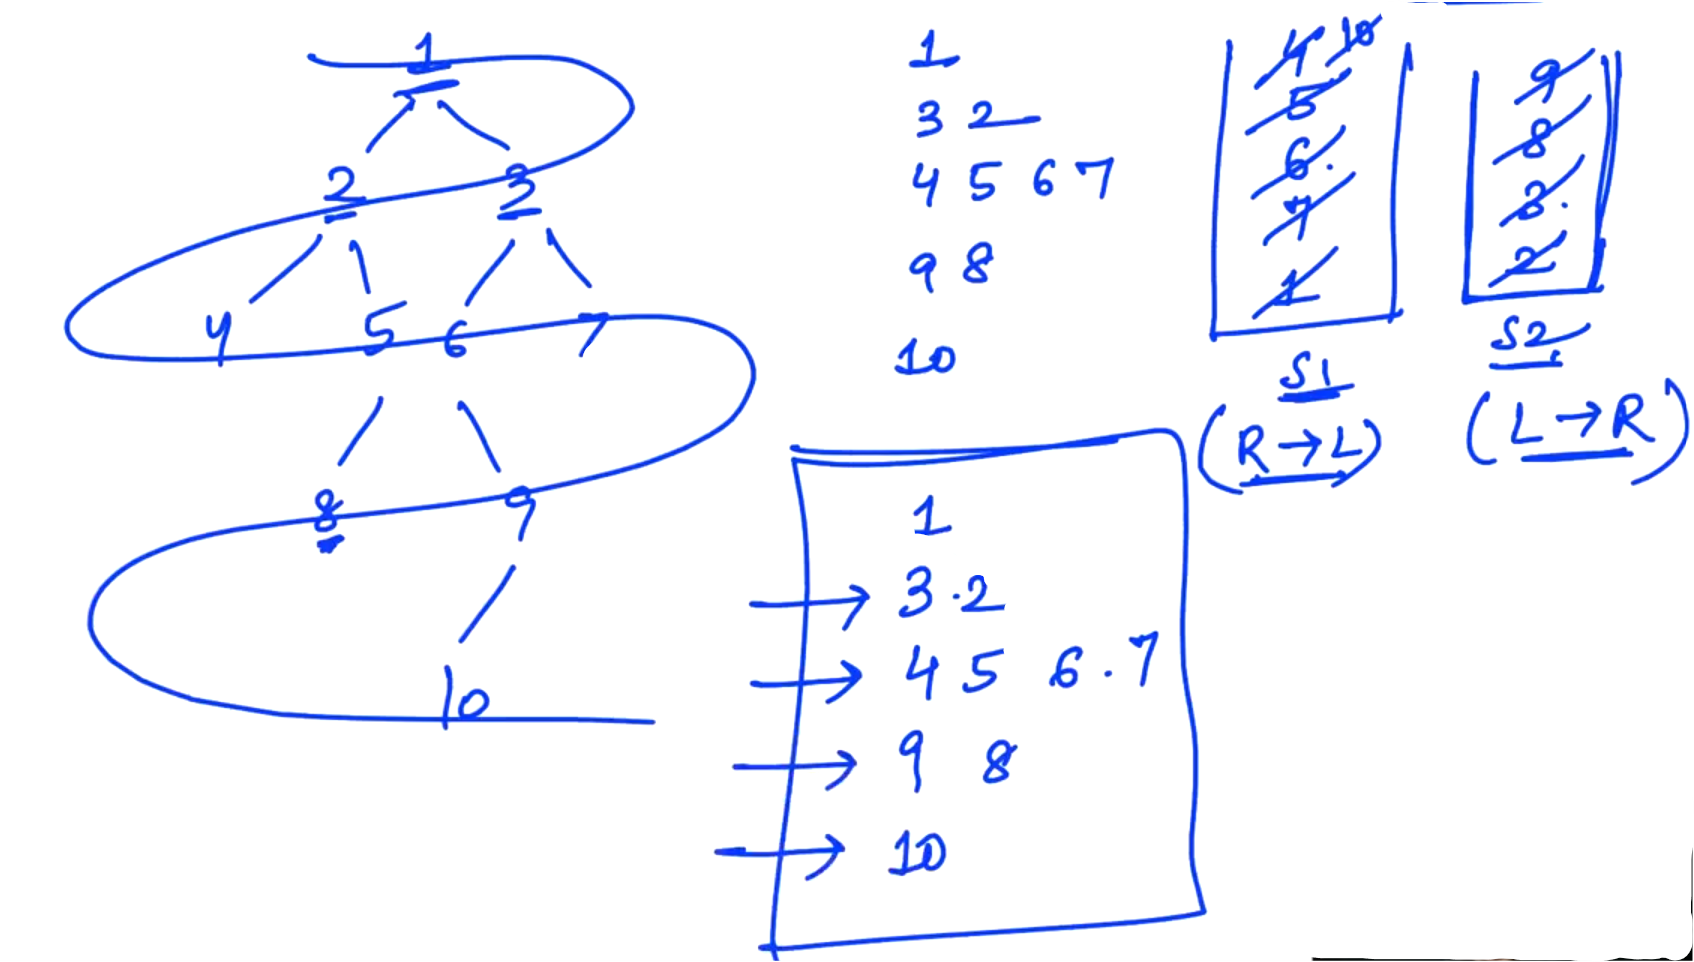 1
2 3
4 5 6 7
8 9
10
1
3 2
4 5 6 7
9 8
10
4 10
5
6
7
1
S1
(R→L)
9
8
3
2
S2
(L→R)
1
→ 3 2
→ 4 5 6 7
→ 9 8
→ 10